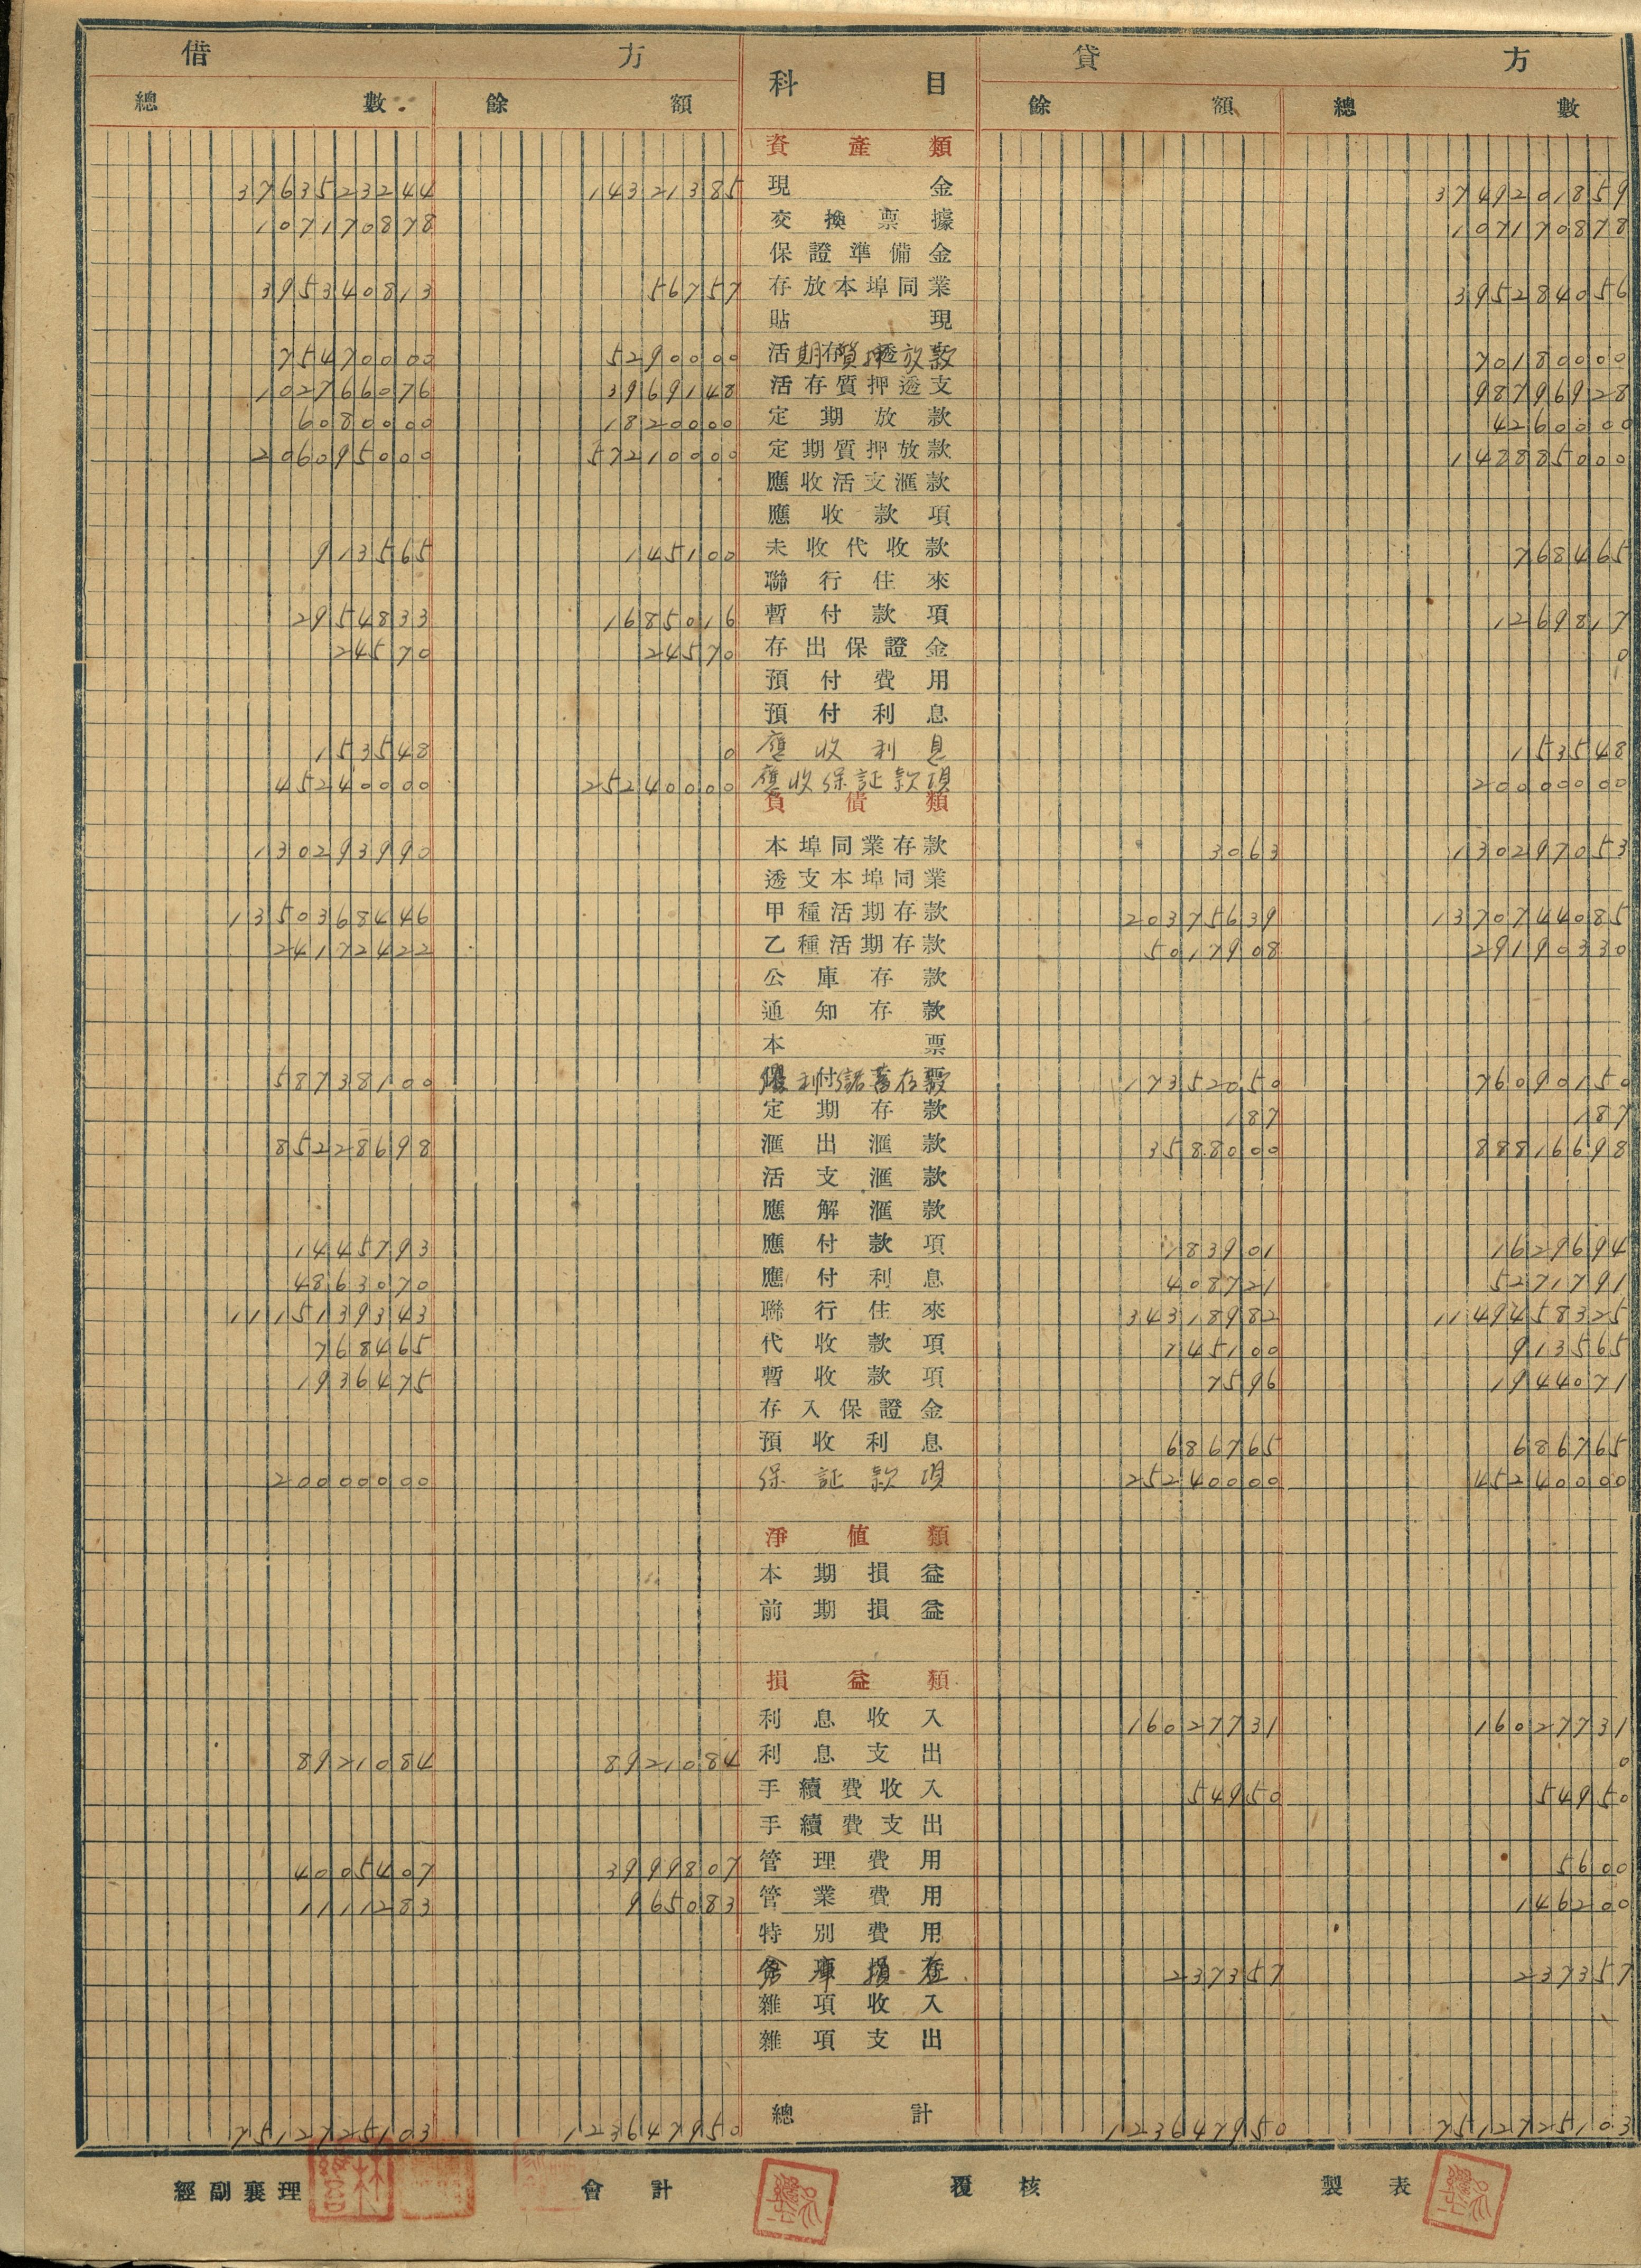 借 方 科 目 貸 方
總 數 餘 額 餘 額 總 數
資產類
3763523244 14321385 現金 3749201859
107170878 交換票據 107170878
保證準備金
395340813 56757 存放本埠同業 395284056
貼現
75470000 5290000 活期質押放款 70180000
102766076 3969148 活存質押透支 98796928
6080000 1820000 定期放款 4260000
206095000 57210000 定期質押放款 148885000
應收活支滙款
應收款項
913565 145100 未收代收款 768465
聯行往來
2954833 1685016 暫付款項 1269817
24570 24570 存出保證金 0
預付費用
預付利息
153548 0 應收利息 153548
45240000 25240000 應收保証款項 20000000
負債類
130293990 本埠同業存款 3063 130297053
透支本埠同業
1350368446 甲種活期存款 20375639 1370744085
24172422 乙種活期存款 5017908 29190330
公庫存款
通知存款
本票
58738100 優利儲蓄存款 17352050 76090150
定期存款 187 187
85228698 滙出滙款 3588000 88816698
活支滙款
應解滙款
1445793 應付款項 183901 1629694
4863070 應付利息 408721 5271791
1115139343 聯行往來 34318982 1149458325
768465 代收款項 145100 913565
1936475 暫收款項 7596 1944071
存入保證金
預收利息 686765 686765
20000000 保証款項 25240000 45240000
淨值類
本期損益
前期損益
損益類
利息收入 16027731 16027731
8921084 8921084 利息支出 0
手續費收入 54950 54950
手續費支出
4005407 3999807 管理費用 5600
1111283 965083 營業費用 146200
特別費用
237357 237357
雜項收入
雜項支出
7512725103 123647950 總計 123647950 7512725103
經副襄理 會計 覆核 製表